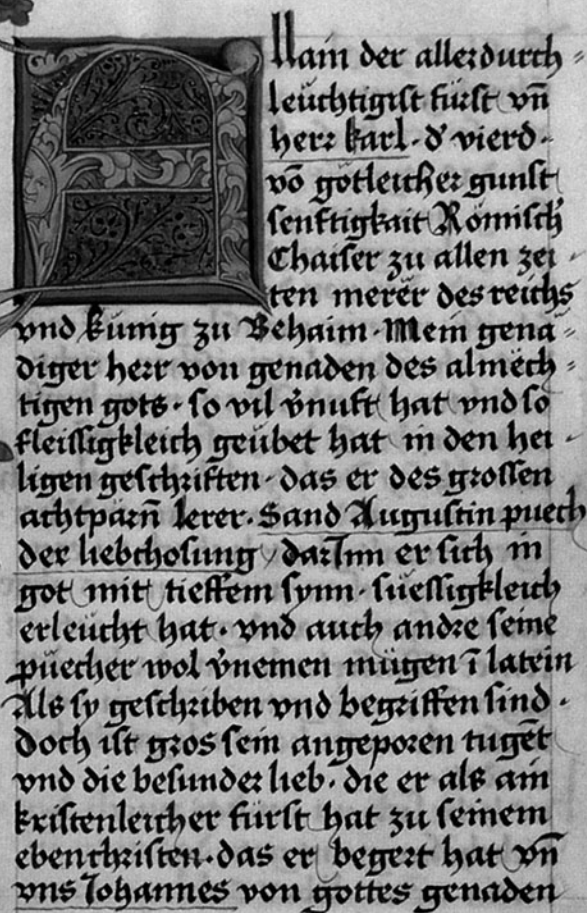 Allain der allerdurch⸗
leuchtigist fürst vn̄
herr karl · d' vierd ·
vō götleicher gunst
senftigkait Römisch'
Chaiser zu allen zei⸗
ten merer des reichs
vnd kunig zu Behaim · Mein gena⸗
diger herr von genaden des almech⸗
tigen gots · so vil v̄nuft hat vnd so
fleissigkleich geübet hat in den hei⸗
ligen geschriften · das er des grossen
achtpärn̄ lerer · Sand Augustin puech
der liebchosung / darInn er sich in
got mit tieffem synn · suessigkleich
erleücht hat · vnd auch andre seine
püecher wol v̄nemen mügen ī latein
Als sy geschriben vnd begriffen sind ·
Doch ist gros sein angeporen tugēt
vnd die besunder lieb · die er als ain
kristenleicher fürst hat zu seinem
ebenchristen · das er begert hat vn̄
vns Johannes von gottes genaden